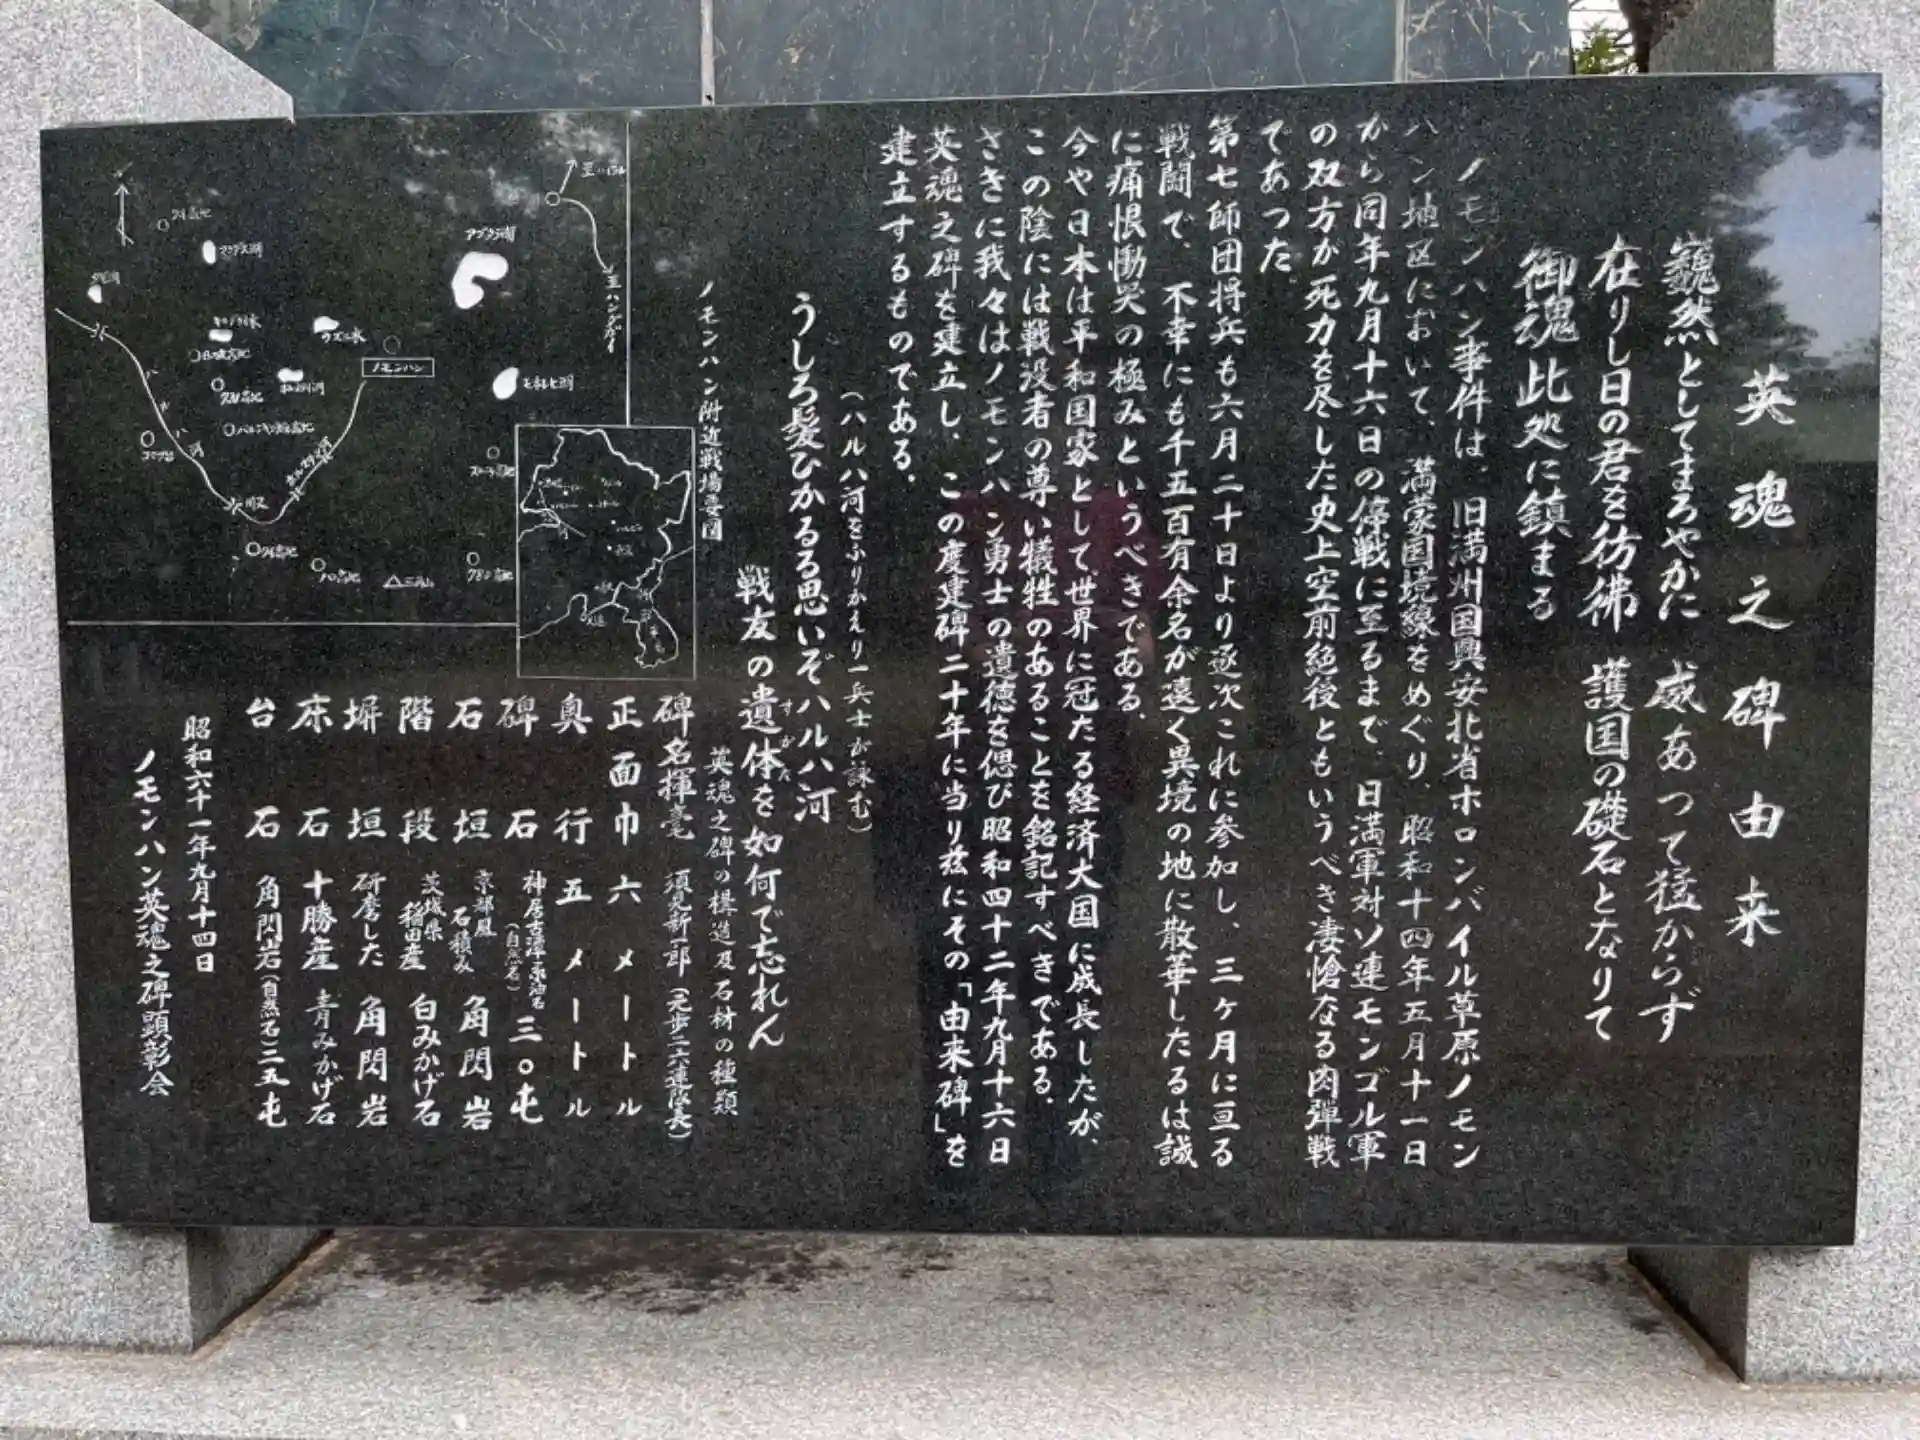 英魂之碑由来
巍然としてまろやかに 威あつて猛からず
在りし日の君を彷彿 護国の礎石となりて
御魂此処に鎮まる
ノモンハン事件は、旧満州国興安北省ホロンバイル草原ノモン
ハン地区において、満蒙国境線をめぐり、昭和十四年五月十一日
から同年九月十六日の停戦に至るまで、日満軍対ソ連モンゴル軍
の双方が死力を尽した史上空前絶後ともいうべき凄愴なる肉弾戦
であつた。
第七師団将兵も六月二十日より逐次これに参加し、三ヶ月に亘る
戦闘で、不幸にも千五百有余名が遠く異境の地に散華したるは誠
に痛恨慟哭の極みというべきである。
今や日本は平和国家として世界に冠たる経済大国に成長したが、
この陰には戦没者の尊い犠牲のあることを銘記すべきである。
さきに我々はノモンハン勇士の遺徳を偲び昭和四十二年九月十六日
英魂之碑を建立し、この度建碑二十年に当り茲にその「由来碑」を
建立するものである。
(ハルハ河をふりかえり一兵士が詠む)
うしろ髪ひかるる思いぞハルハ河
戦友の遺体を如何で忘れん
すがた
英魂之碑の構造及石材の種類
碑名揮毫 須見新一郎(元歩二六連隊長)
正面巾 六メートル
奥行 五メートル
碑石 神居古潭 (自然石) 三〇屯
石垣 京都風石積み 角閃岩
階段 茨城県稲田産 白みかげ石
塀垣 研磨した 角閃岩
床石 十勝産 青みかげ石
台石 角閃岩(自然石)三五屯
昭和六十一年九月十四日
ノモンハン英魂之碑顕彰会
ノモンハン附近戦場要図
至ハンダガイ
アブダラ湖
ノモンハン
ハルハ河
ホルステン河
三角山
780高地